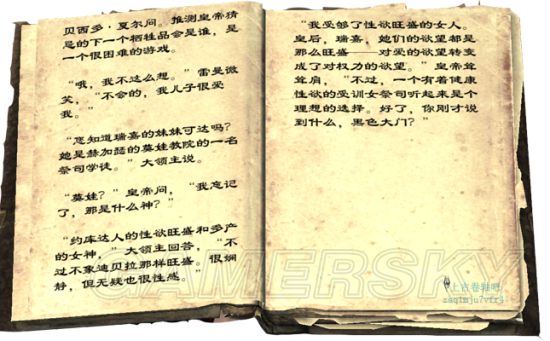 贝西多·夏尔问。推测皇帝猜
忌的下一个牺牲品会是谁,是
一个很困难的游戏。
"哦,我不这么想。"雷曼微
笑,"不会的,我儿子很爱
我。"
"您知道瑞嘉的妹妹可达吗?
她是赫加瑟的莫娃教院的一名
祭司学徒。"大领主说。
"莫娃?"皇帝问,"我忘记
了,那是什么神?"
"约库达人的性欲旺盛和多产
的女神,"大领主回答,"不
过不象迪贝拉那样旺盛。很娴
静,但无疑也很性感。"
"我受够了性欲旺盛的女人。
皇后,瑞嘉,她们的欲望都是
那么旺盛——对爱的欲望转变
成了对权力的欲望。"皇帝耸
耸肩,"不过,一个有着健康
性欲的受训女祭司听起来是个
理想的选择。好了,你刚才说
到什么,黑色大门?"
GAMERSKY
上古卷轴吧